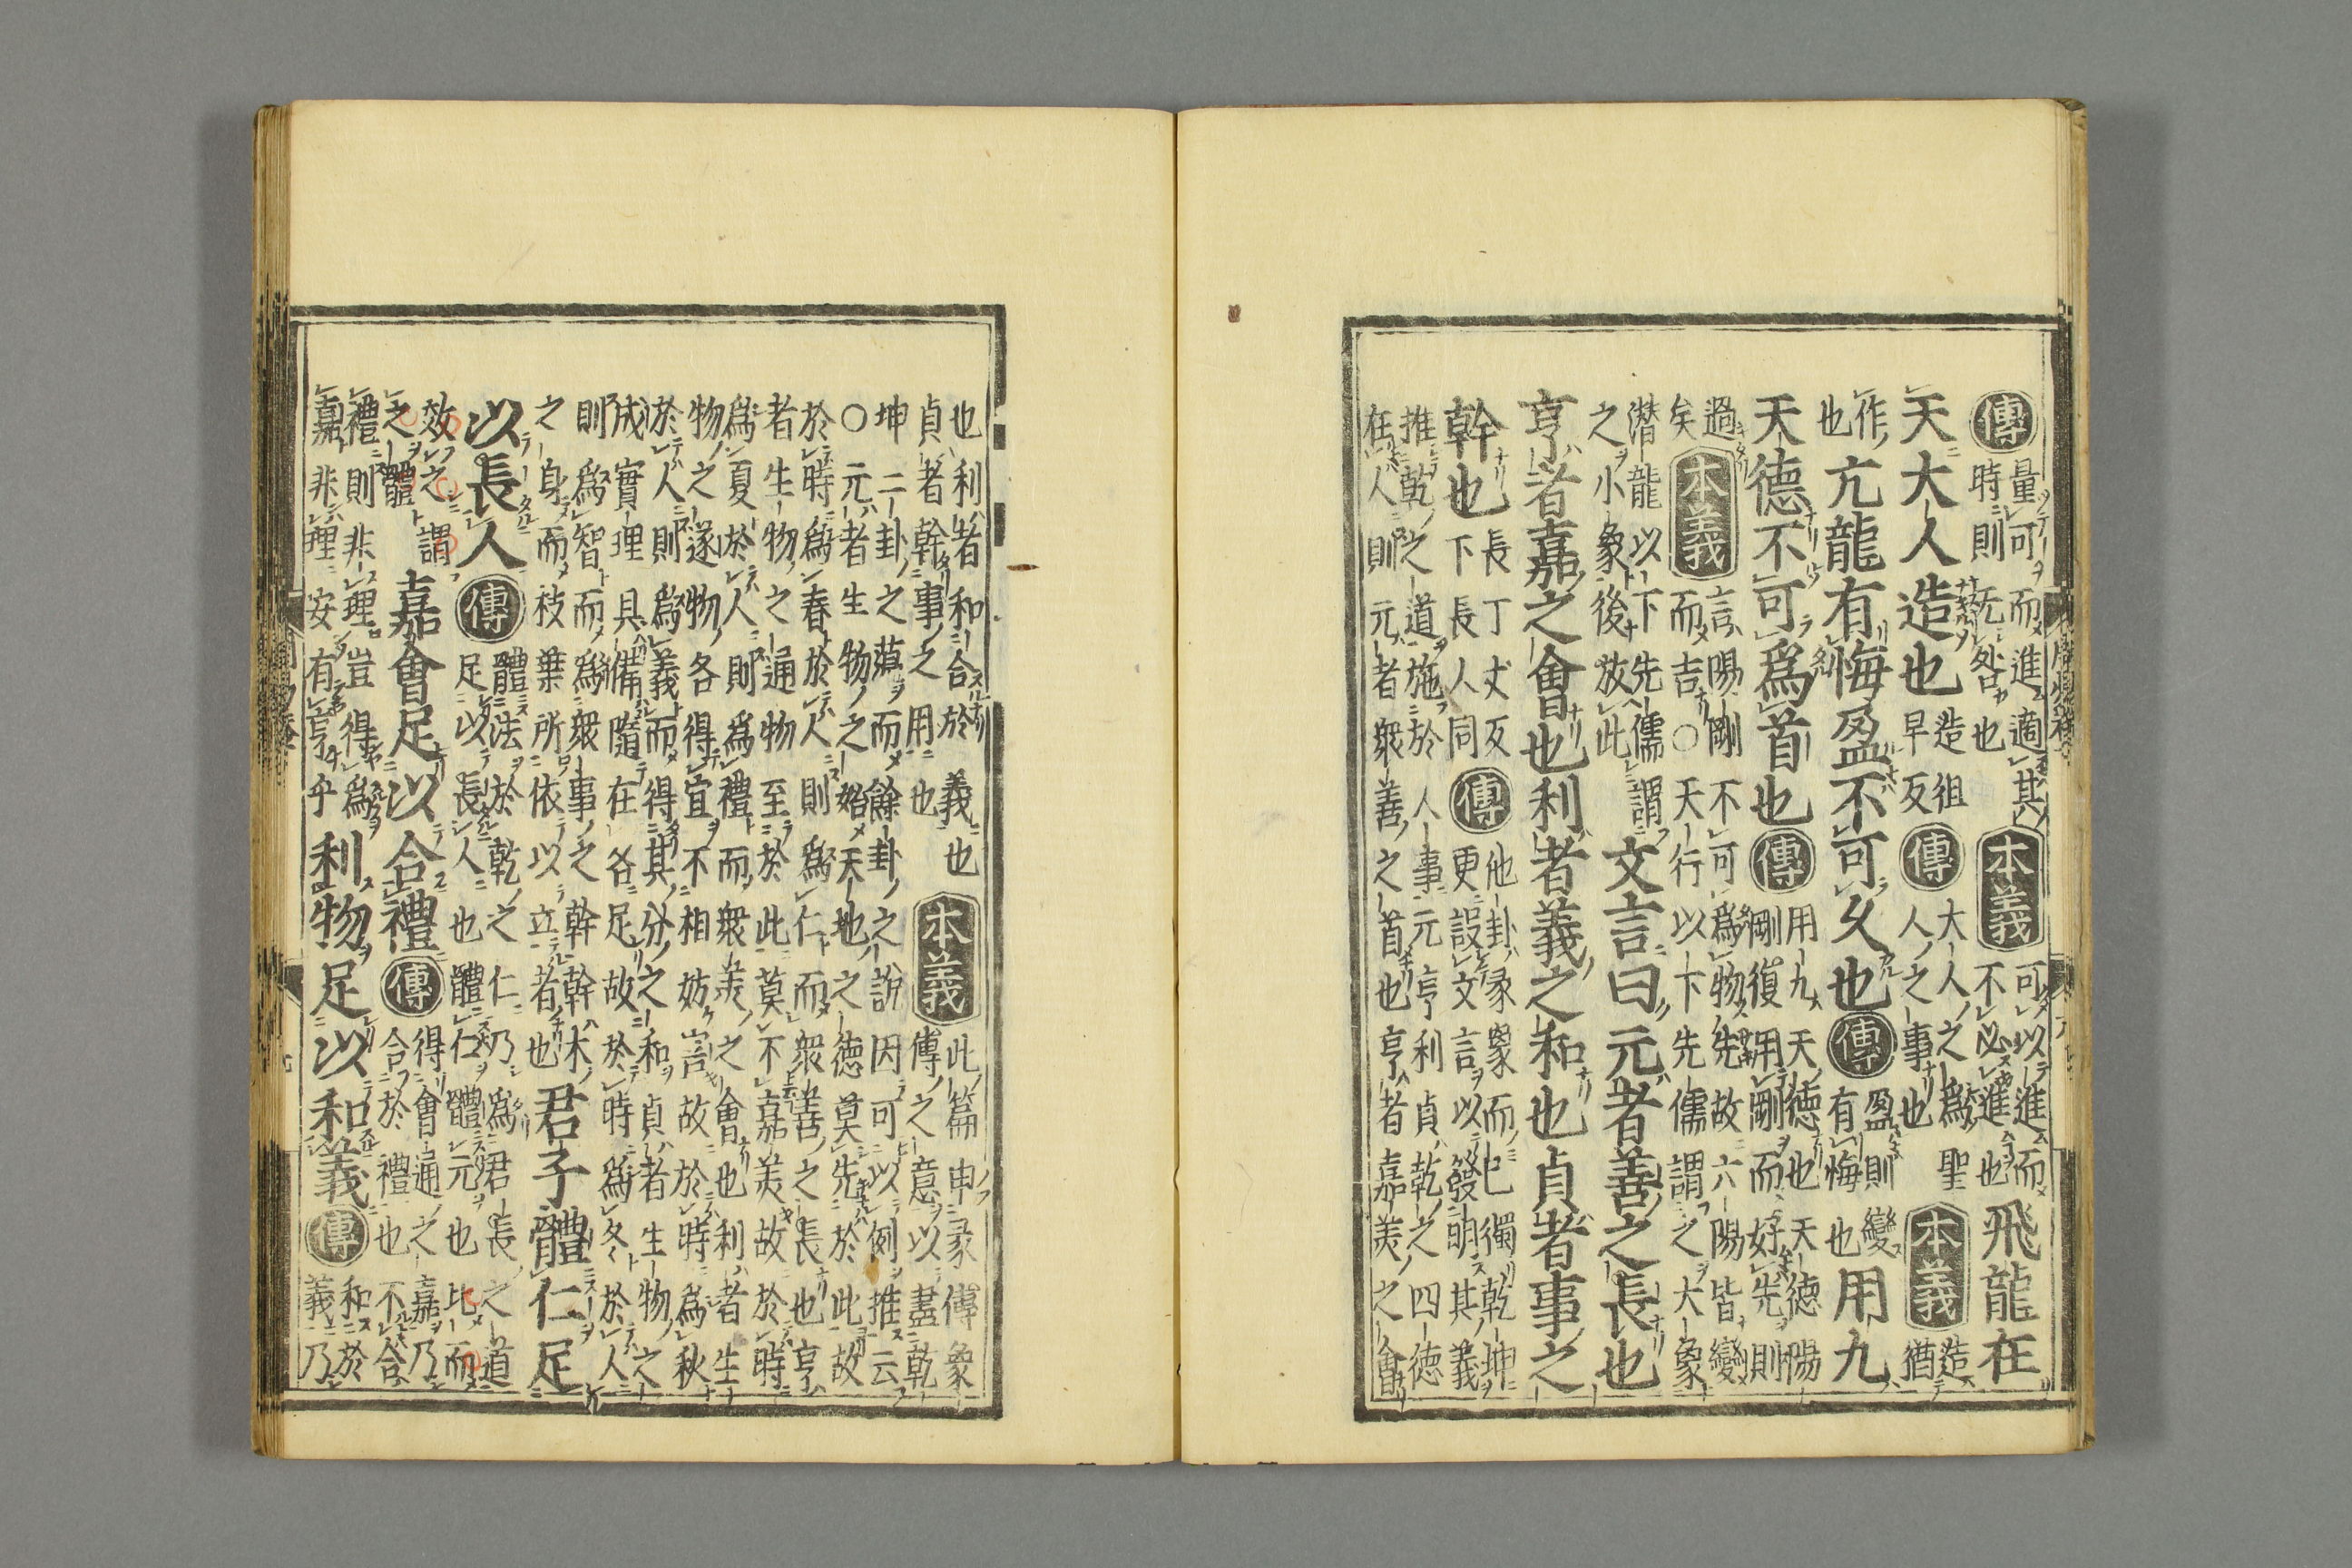 傳量可而進適其
時則无咎也
本義可以進而
不必進也
飛龍在
天大人造也造徂
早反
傳大人之爲聖
人之事也
本義造
猶
作
也
亢龍有悔盈不可久也傳盈則變
有悔也
用九
天德不可爲首也傳用九天德也天德陽
剛復用剛而好先則
過
矣
本義言陽剛不可爲物先故六陽皆變
而吉○天行以下先儒謂之大象
潛龍以下先儒謂
之小象後放此
文言曰元者善之長也
亨者嘉之會也利者義之和也貞者事之
幹也長丁丈反
下長人同
傳他卦彖象而已獨乾坤
更設文言以發明其義
推乾之道施於人事元亨利貞乾之四德
在人則元者衆善之首也亨者嘉美之會
也利者和合於義也
貞者幹事之用也
本義此篇申彖傳象
傳之意以盡乾
坤二卦之蘊而餘卦之說因可以例推云
○元者生物之始天地之德莫先於此故
於時爲春於人則爲仁而衆善之長也亨
者生物之通物至於此莫不嘉美故於時
爲夏於人則爲禮而衆美之會也利者生
物之遂物各得宜不相妨害故於時爲秋
於人則爲義而得其分之和貞者生物之
成實理具備隨在各足故於時爲冬於人
則爲智而爲衆事之幹幹木
之身而枝葉所依以立者也
君子體仁足
以長人傳體法於乾之仁乃爲君長之道
足以長人也體仁體元也比而
效之謂
之體
嘉會足以合禮傳得會通之嘉乃
合於禮也不合
禮則非理豈得爲
嘉非理安有亨乎
利物足以和義傳和於
義乃